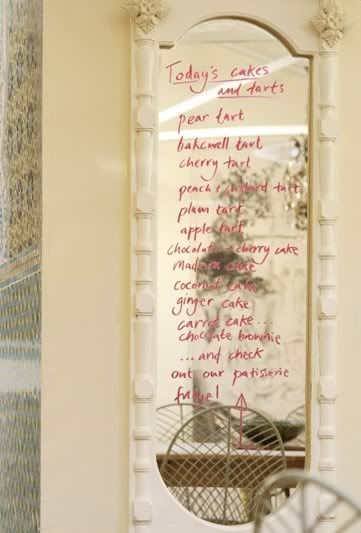 Today's cakes
and tarts
pear tart
bakewell tart
cherry tart
peach + custard tart
plum tart
apple tart
chocolate + cherry cake
Madeira cake
coconut cake
ginger cake
carrot cake...
chocolate brownie
...and check
out our patisserie
fridge!